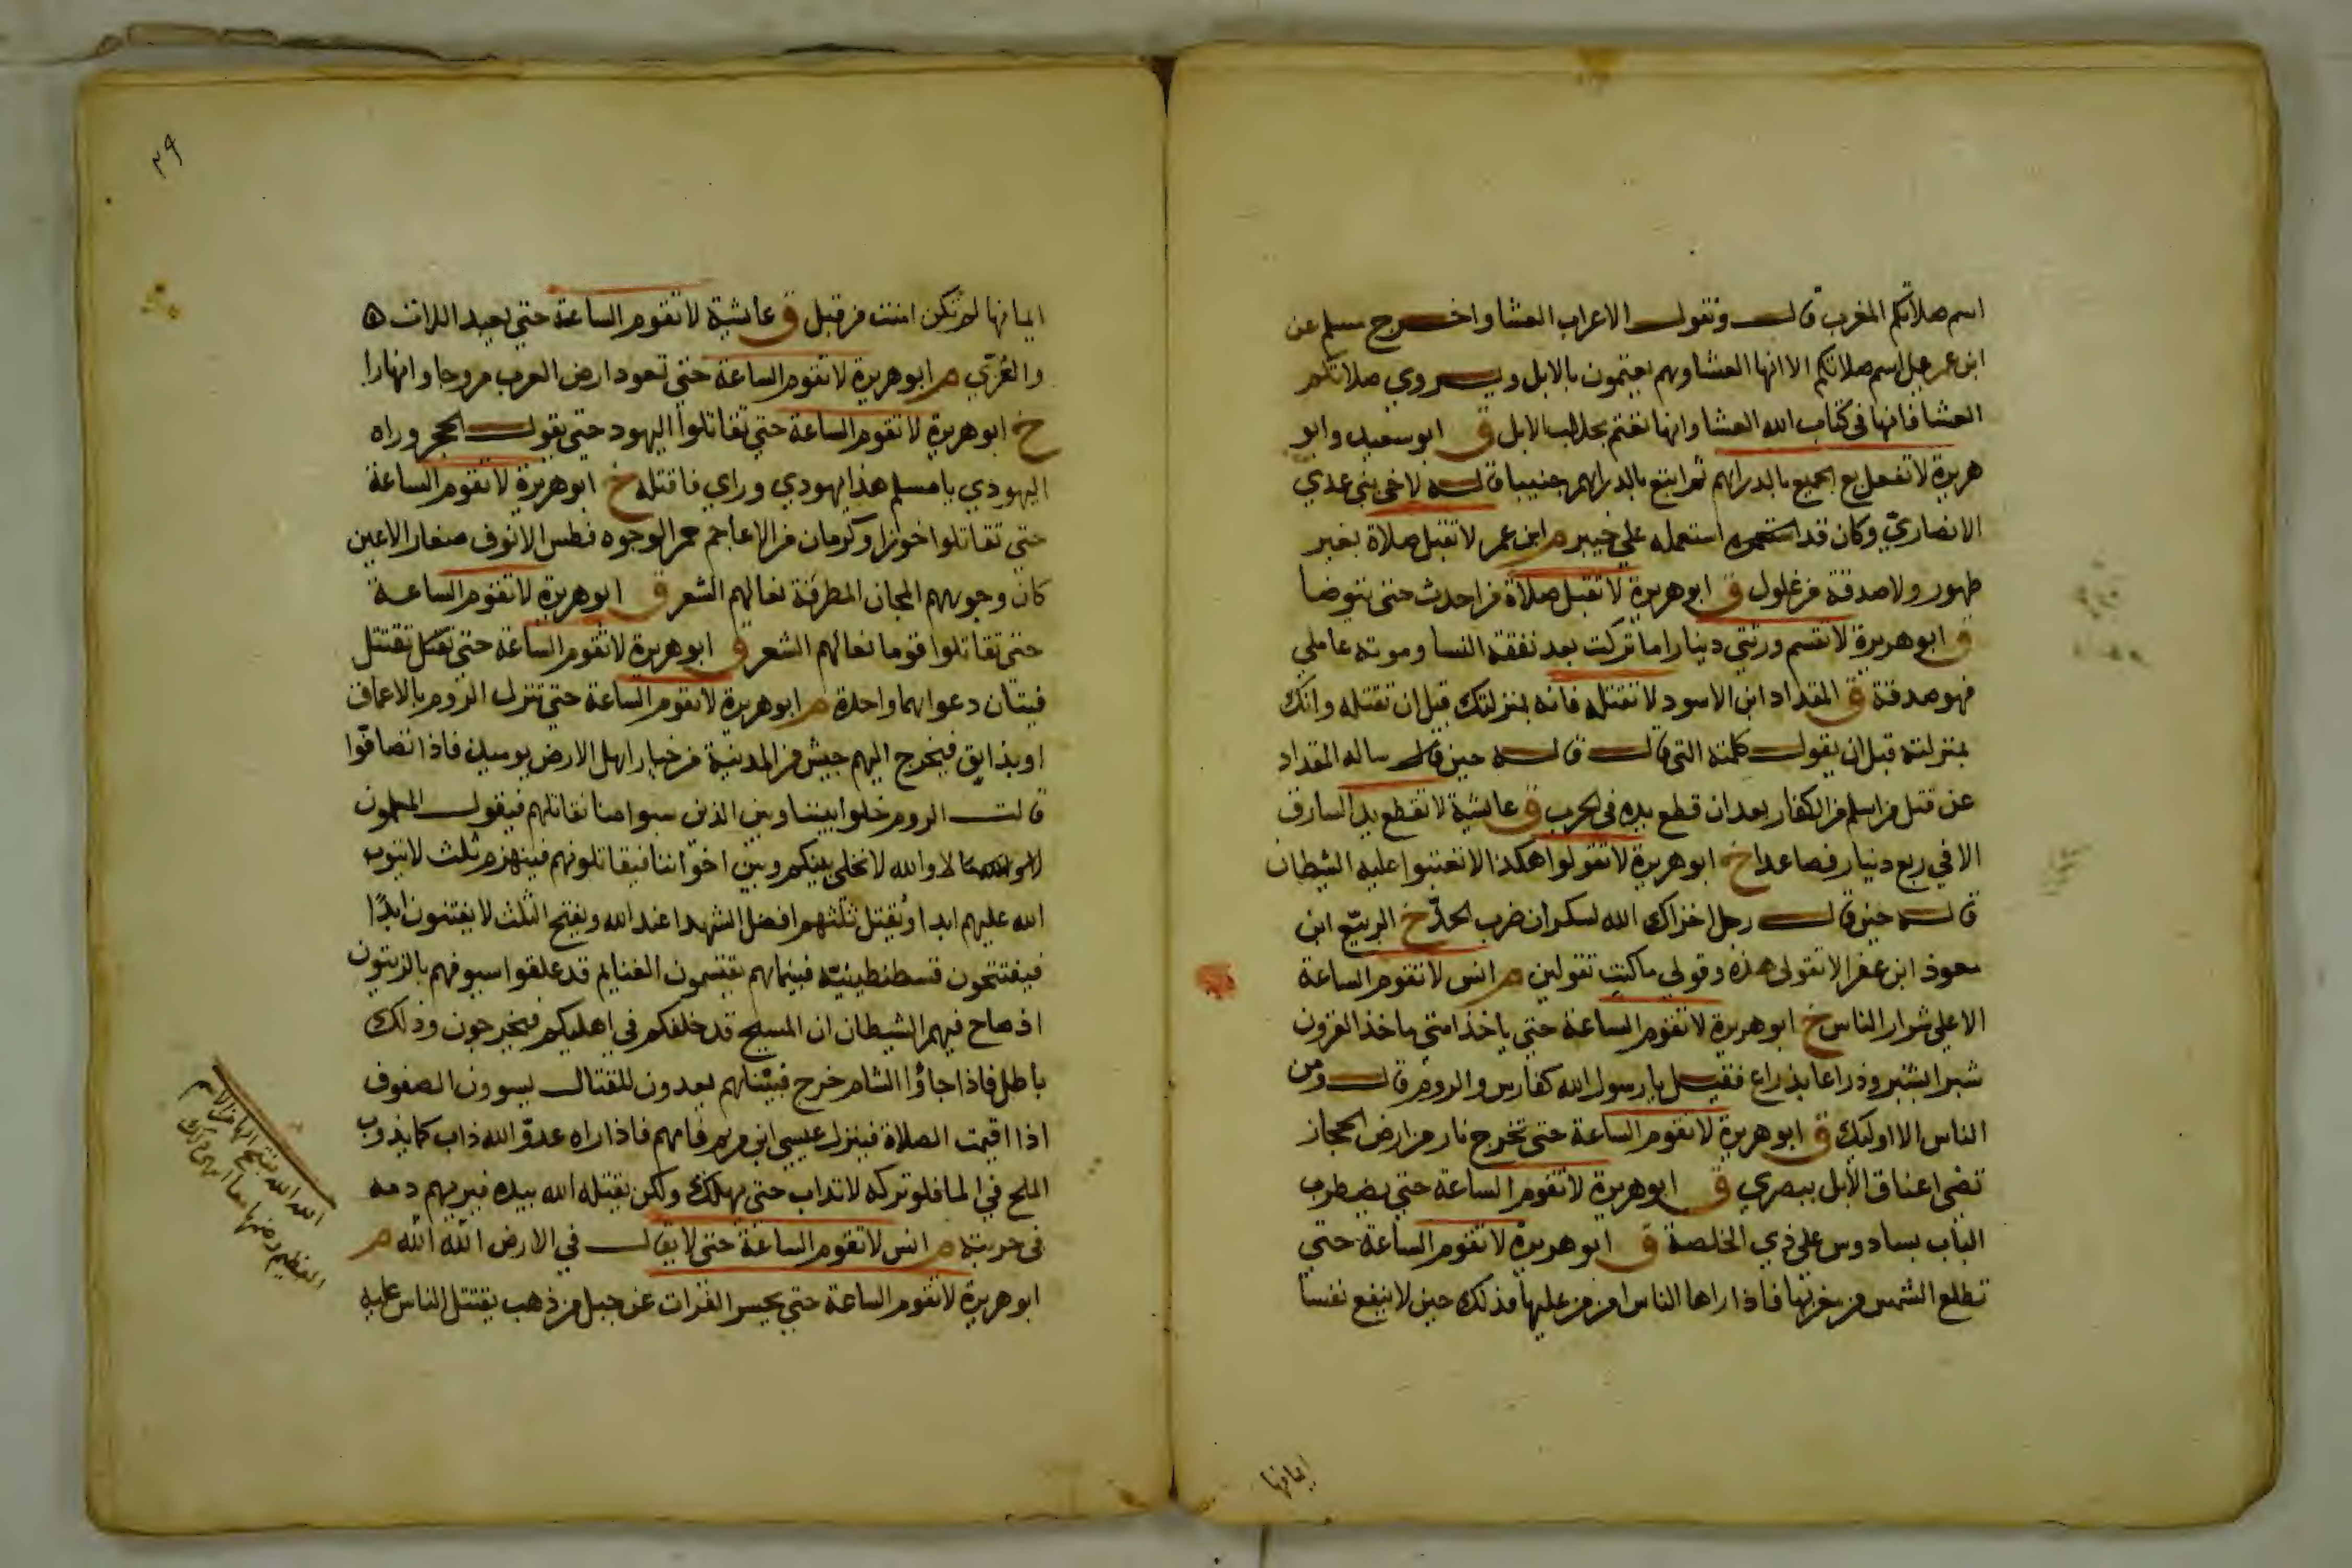 اسم صلاتكم المغرب قال وتقول الاعراب العشا واخرج مسلم عن
ابن عمر على اسم صلاتكم الا انها العشا وهم يعتمون بالابل ويروي صلاتكم
العشا فانها في كتاب الله العشا وانها تعتم بحلاب الابل ق ابو سعيد وابو
هريرة لا تفعل بع الجميع بالدراهم ثم ابتع بالدراهم جنيبا قاله لاخي بني عدي
الانصاري وكان قد استعمله علي خيبر م ابن عمر لا تقبل صلاة بغير
طهور ولا صدقة من غلول ق ابو هريرة لا تقبل صلاة من احدث حتى يتوضا
ق ابو هريرة لا تقسم ورثتي دينارا ما تركت بعد نفقة النسا وموتة عاملي
فهو صدقة ق المقداد ابن الاسود لا تقتله فانه بمنزلتك قبل ان تقتله وانك
بمنزلته قبل ان يقول كلمته التي قال قاله حين ساله المقداد
عن قتل من اسلم من الكفار بعد ان قطع يده في الحرب ق عائشة لا تقطع يد السارق
الا في ربع دينار فصاعدا خ ابو هريرة لا تقولوا هكذا لا تعينوا عليه الشيطان
قاله حين قال رجل اخزاك الله لسكران ضرب الحد خ الربيع ابن
معوذ ابن عفرا لا تقولى هذه وقولي ما كنت تقولين م انس لا تقوم الساعة
الا علي شرار الناس خ ابو هريرة لا تقوم الساعة حتى ياخذ امتي ماخذ القرون
شبرا بشبر وذراعا بذراع فقيل يا رسول الله كفارس والروم قال ومن
الناس الا اوليك ق ابو هريرة لا تقوم الساعة حتى تخرج نار من ارض الحجاز
تضي اعناق الابل ببصري ق ابو هريرة لا تقوم الساعة حتى يضطرب
الباب بسا دوس على ذي الخلصة ق ابو هريرة لا تقوم الساعة حتي
تطلع الشمس من مغربها فاذا راها الناس امن من عليها فذلك حين لا ينفع نفسا
ايمانها
٢٩
ايمانها لم تكن امنت من قبل ق عائشة لا تقوم الساعة حتي يعبد اللات
والعزي م ابو هريرة لا تقوم الساعة حتى تعود ارض العرب مروجا وانهارا
خ ابو هريرة لا تقوم الساعة حتي تقاتلوا اليهود حتى يقول الحجر وراه
اليهودي يا مسلم هذا يهودي وراي فاقتله خ ابو هريرة لا تقوم الساعة
حتي تقاتلوا خوزا وكرمان من الاعاجم حمر الوجوه فطس الانوف صغار الاعين
كان وجوههم المجان المطرقة نعالهم الشعر ق ابو هريرة لا تقوم الساعة
حتى تقاتلوا قوما نعالهم الشعر ق ابو هريرة لا تقوم الساعة حتي تقتل تقتتل
فيتان دعواهما واحدة م ابو هريرة لا تقوم الساعة حتي تنزل الروم بالاعماق
او بدابق فيخرج اليهم جيش من المدينة من خيار اهل الارض يوميذ فاذا تصافوا
قالت الروم خلوا بيننا وبين الذين سبوا منا نقاتلهم فيقول المسلمون
لا والله لا نخلي بينكم وبين اخواننا فيقاتلونهم فينهزم ثلث لا يتوب
الله عليهم ابدا ويقتل ثلثهم افضل الشهدا عند الله ويفتح الثلث لا يفتنون ابدا
فيفتتحون قسطنطينية فبينما هم يقتسمون الغنايم قد علقوا سيوفهم بالزيتون
اذ صاح فيهم الشيطان ان المسيح قد خلفكم في اهليكم فيخرجون وذلك
باطل فاذا جاؤا الشام خرج فبينا هم يعدون للقتال يسوون الصفوف
اذا اقيمت الصلاة فينزل عيسي ابن مريم فامهم فاذا راه عدو الله ذاب كما يذوب
الملح في الما فلو تركه لانذاب حتى يهلك ولكن يقتله الله بيده فيريهم دمه
في حربته م انس لا تقوم الساعة حتى لا يقال في الارض الله الله م
ابو هريرة لا تقوم الساعة حتي يحسر الفرات عن جبل من ذهب يقتتل الناس عليه